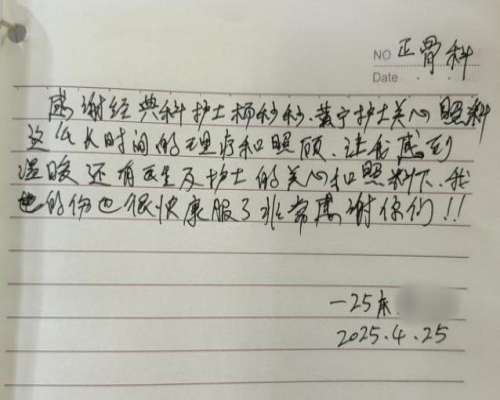 NO 正骨科
Date
感谢经典科护士杨秒秒、黄宁护士关心照料
这么长时间的理疗和照顾、让我感到
温暖还有医生及护士的关心和照料下、我
的伤也很快康服了非常感谢你们!!
—25床
2025.4.25